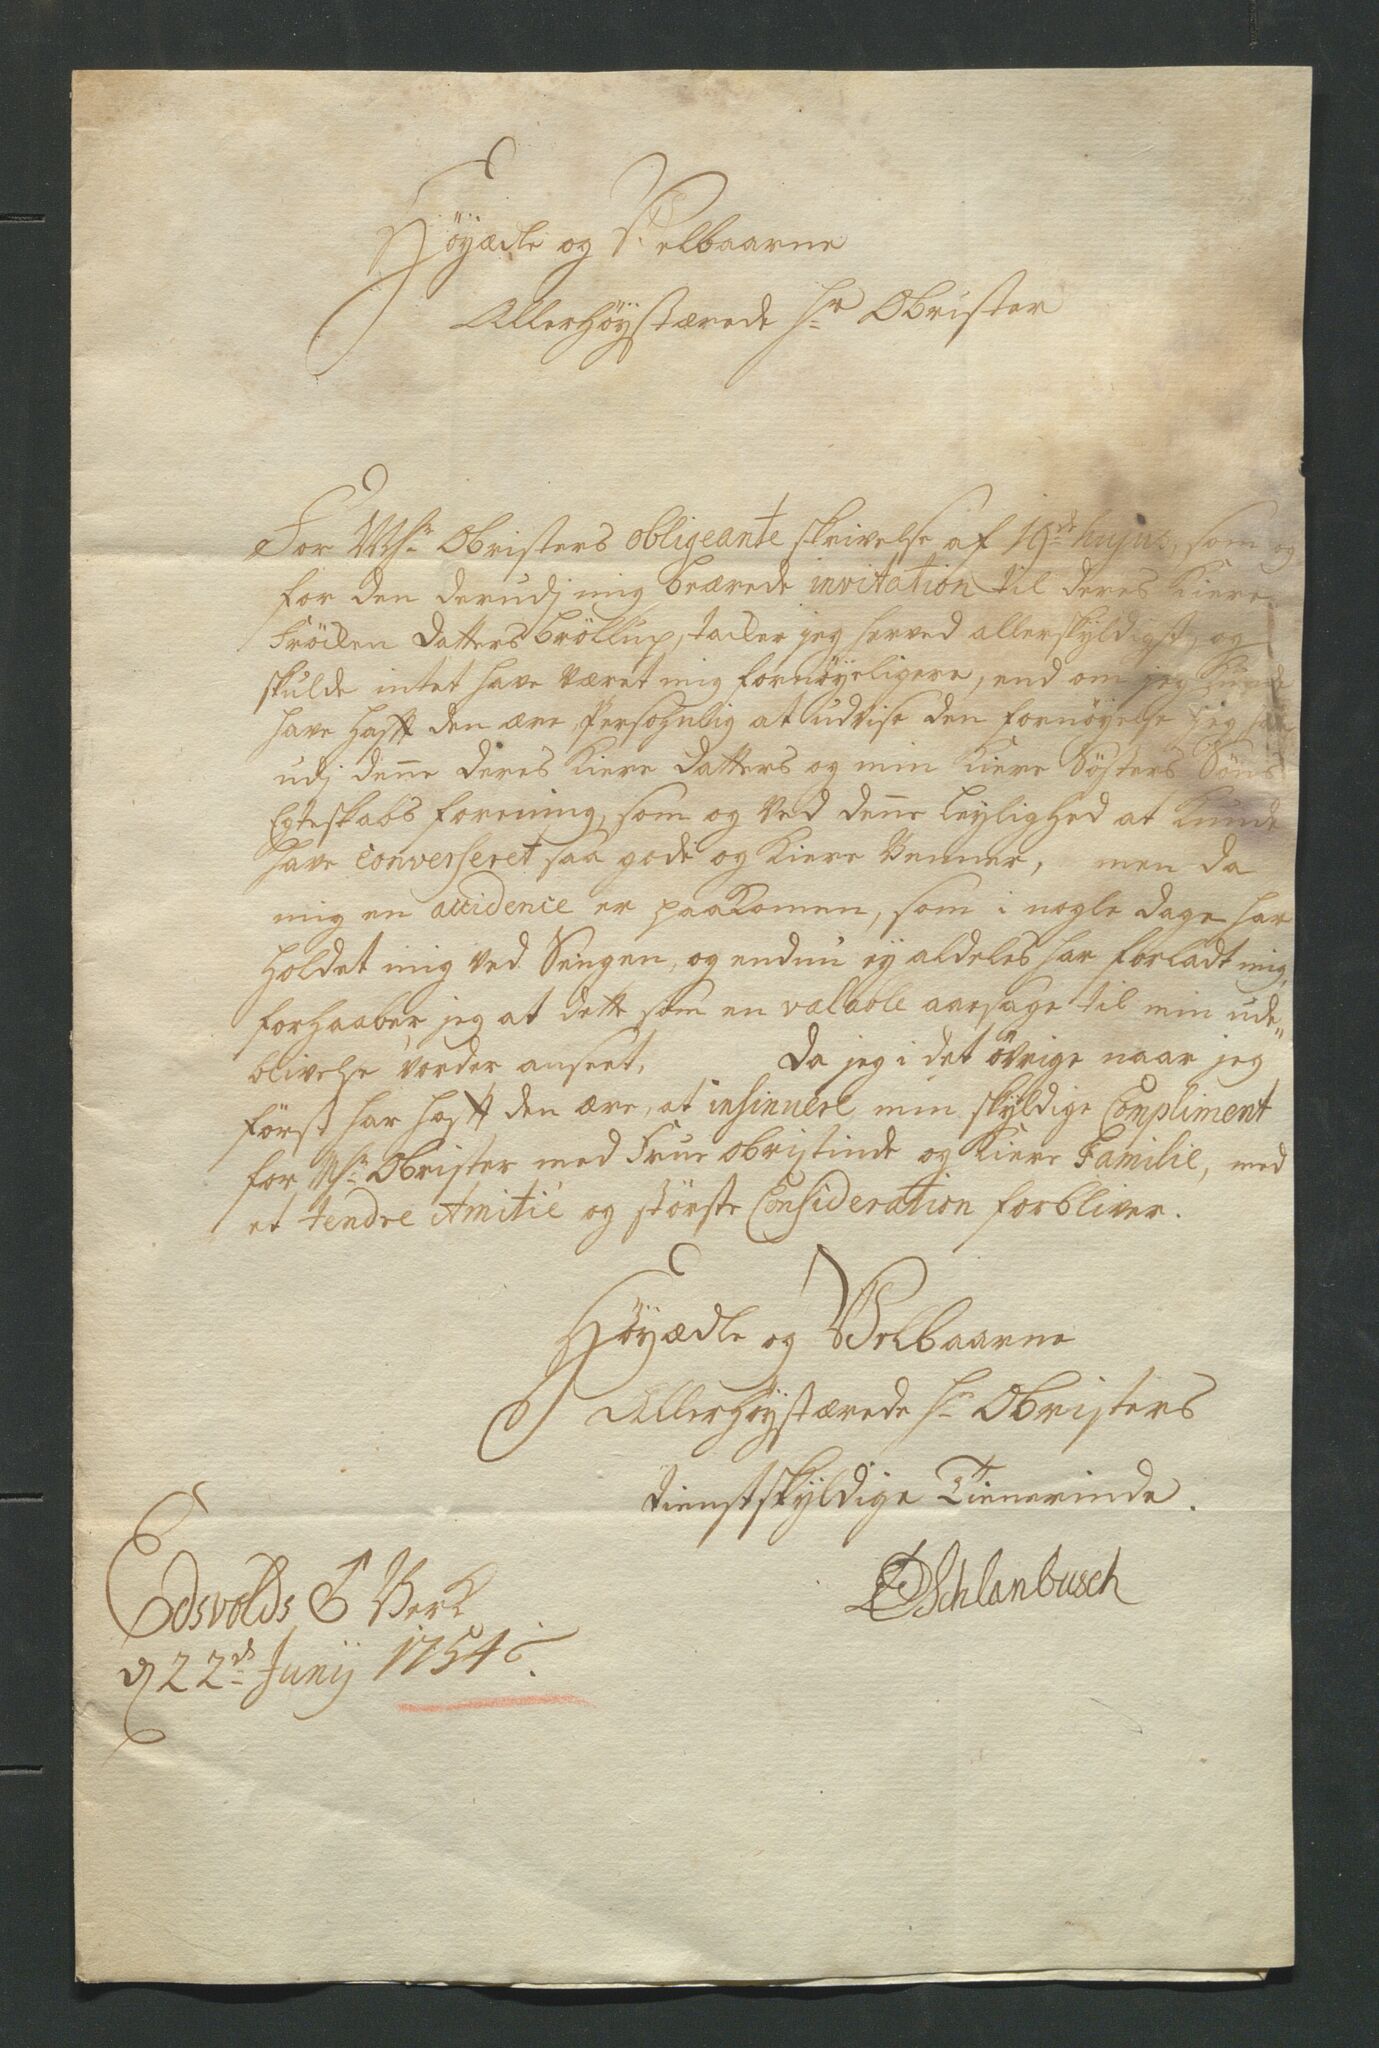 Höyædle og Velbaarne
Allerhöystærede Hr Obrister
For MHr Obristers obligeante skrivelse af 19de hujus, som og
for den derudj mig beærede invitation til deres Kiere
Fröiken datters Bröllup, tacker jeg herved allerskyldigst, og
skulde intet have været mig fornöyeligere, end om jeg kunde
have hafft den ære Persohnlig at udvise den fornöyelse jeg har
udj denne deres Kiere datters og min Kiere Söster Söns
Egteskabs forening, som og ved denne Leylighed at kunde
have converseret saa gode og Kiere Venner, men da
mig en accidence er paakomen, som i nogle dage har
holdet mig ved Sengen, og endnu ey aldeles har forladt mig,
forhaaber jeg at dette som en valable aarsage til min ude„
blivelse vorder anseet, Da jeg i det övrige naar jeg
först har hafft den ære, at insinuere min skyldige Compliment
for MHr Obrister med Frue Obristinde og Kiere Familie, med
et tendre Amitié og störste Consideration forbliver.
Höyædle og Velbaarne
Allerhöystærede Hr Obristers
tienstskyldige Tienerinde.
Schlanbusch
Edsvolds ♂ Verk
d 22de Junij 1754